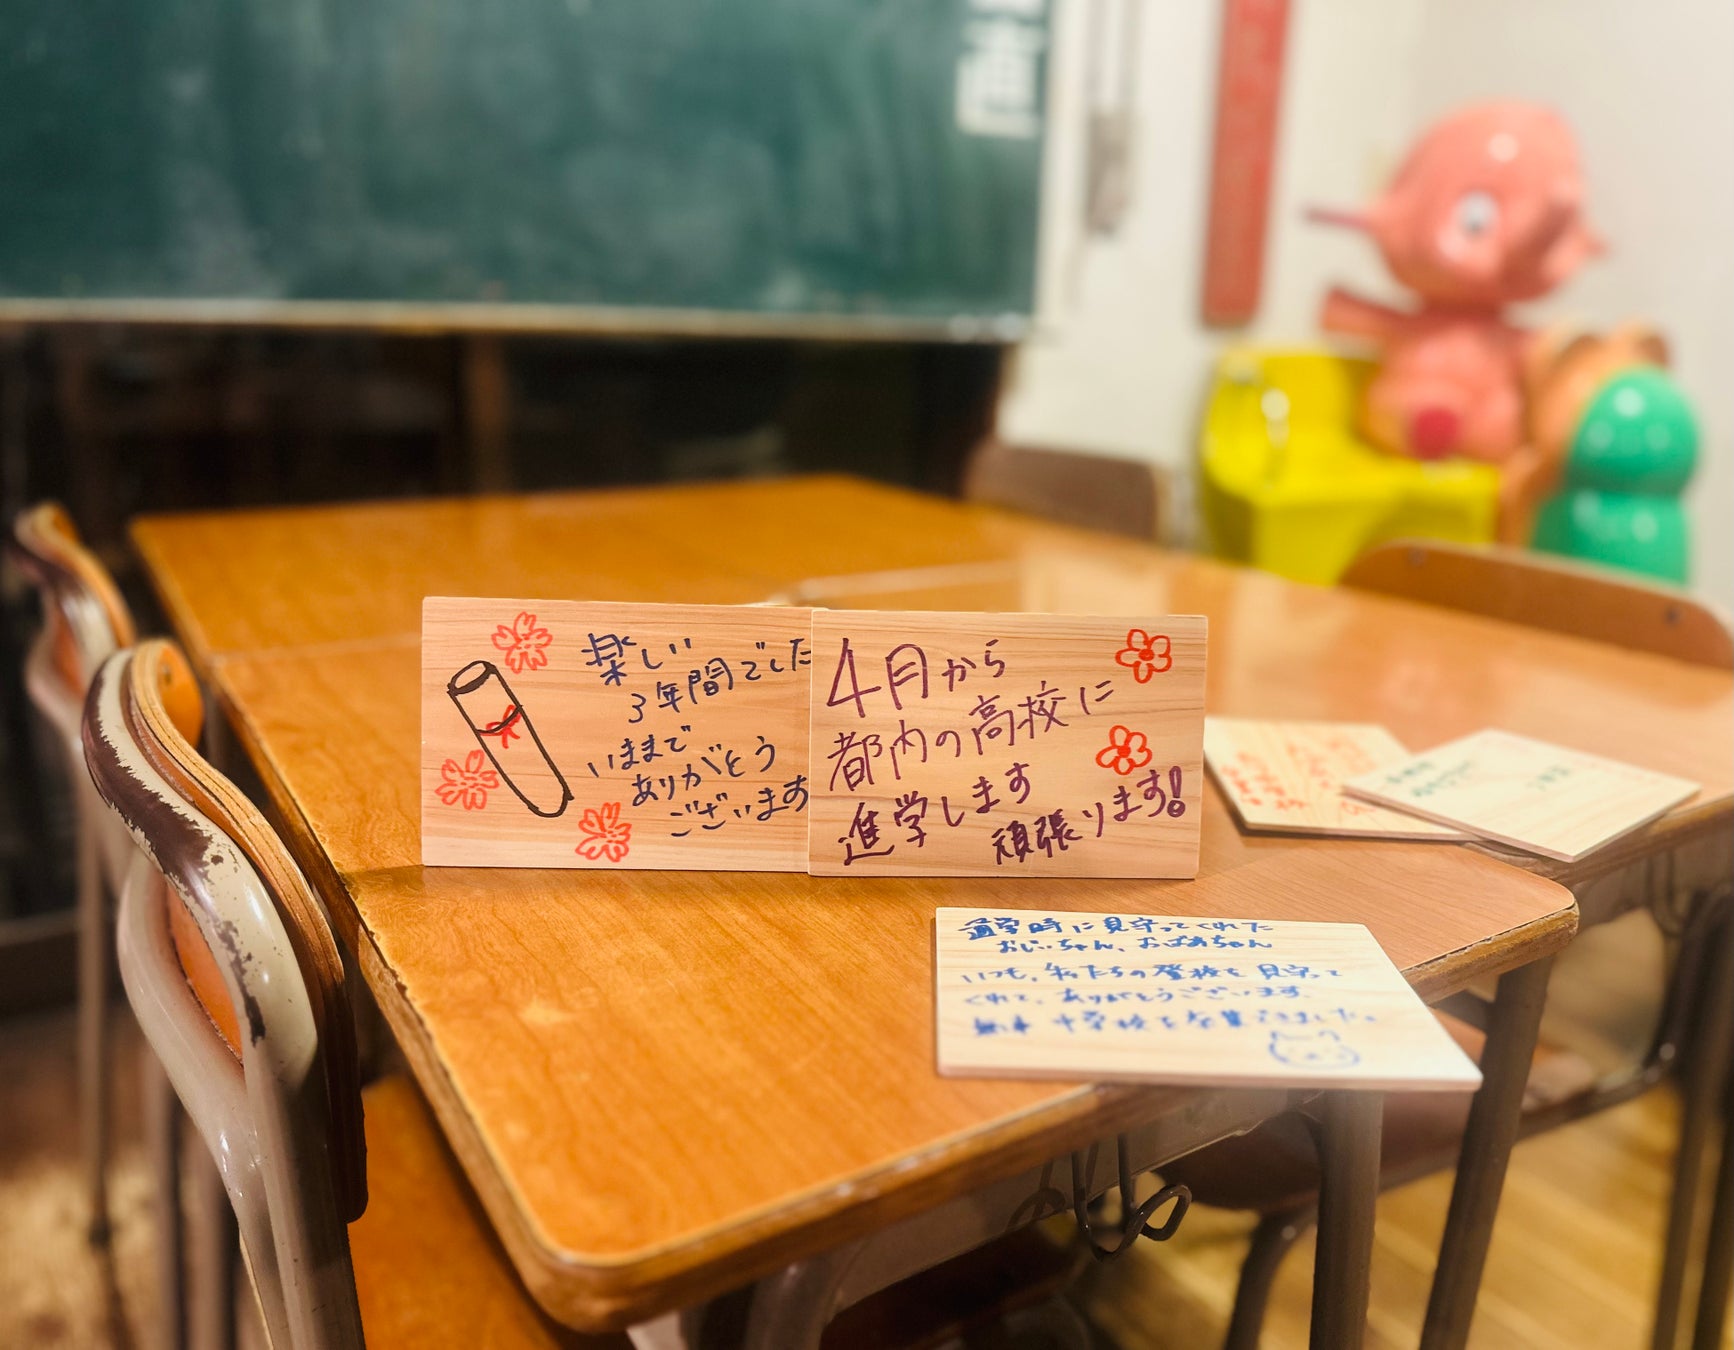 楽しい
3年間でした
いままで
ありがとう
ございます
4月から
都内の高校に
進学します
頑張ります!
通学時に見守ってくれた
おじいちゃん、おばあちゃん
いつも、私たちの登校を見守って
くれて、ありがとうございます。
無事 中学校を卒業できました。
直